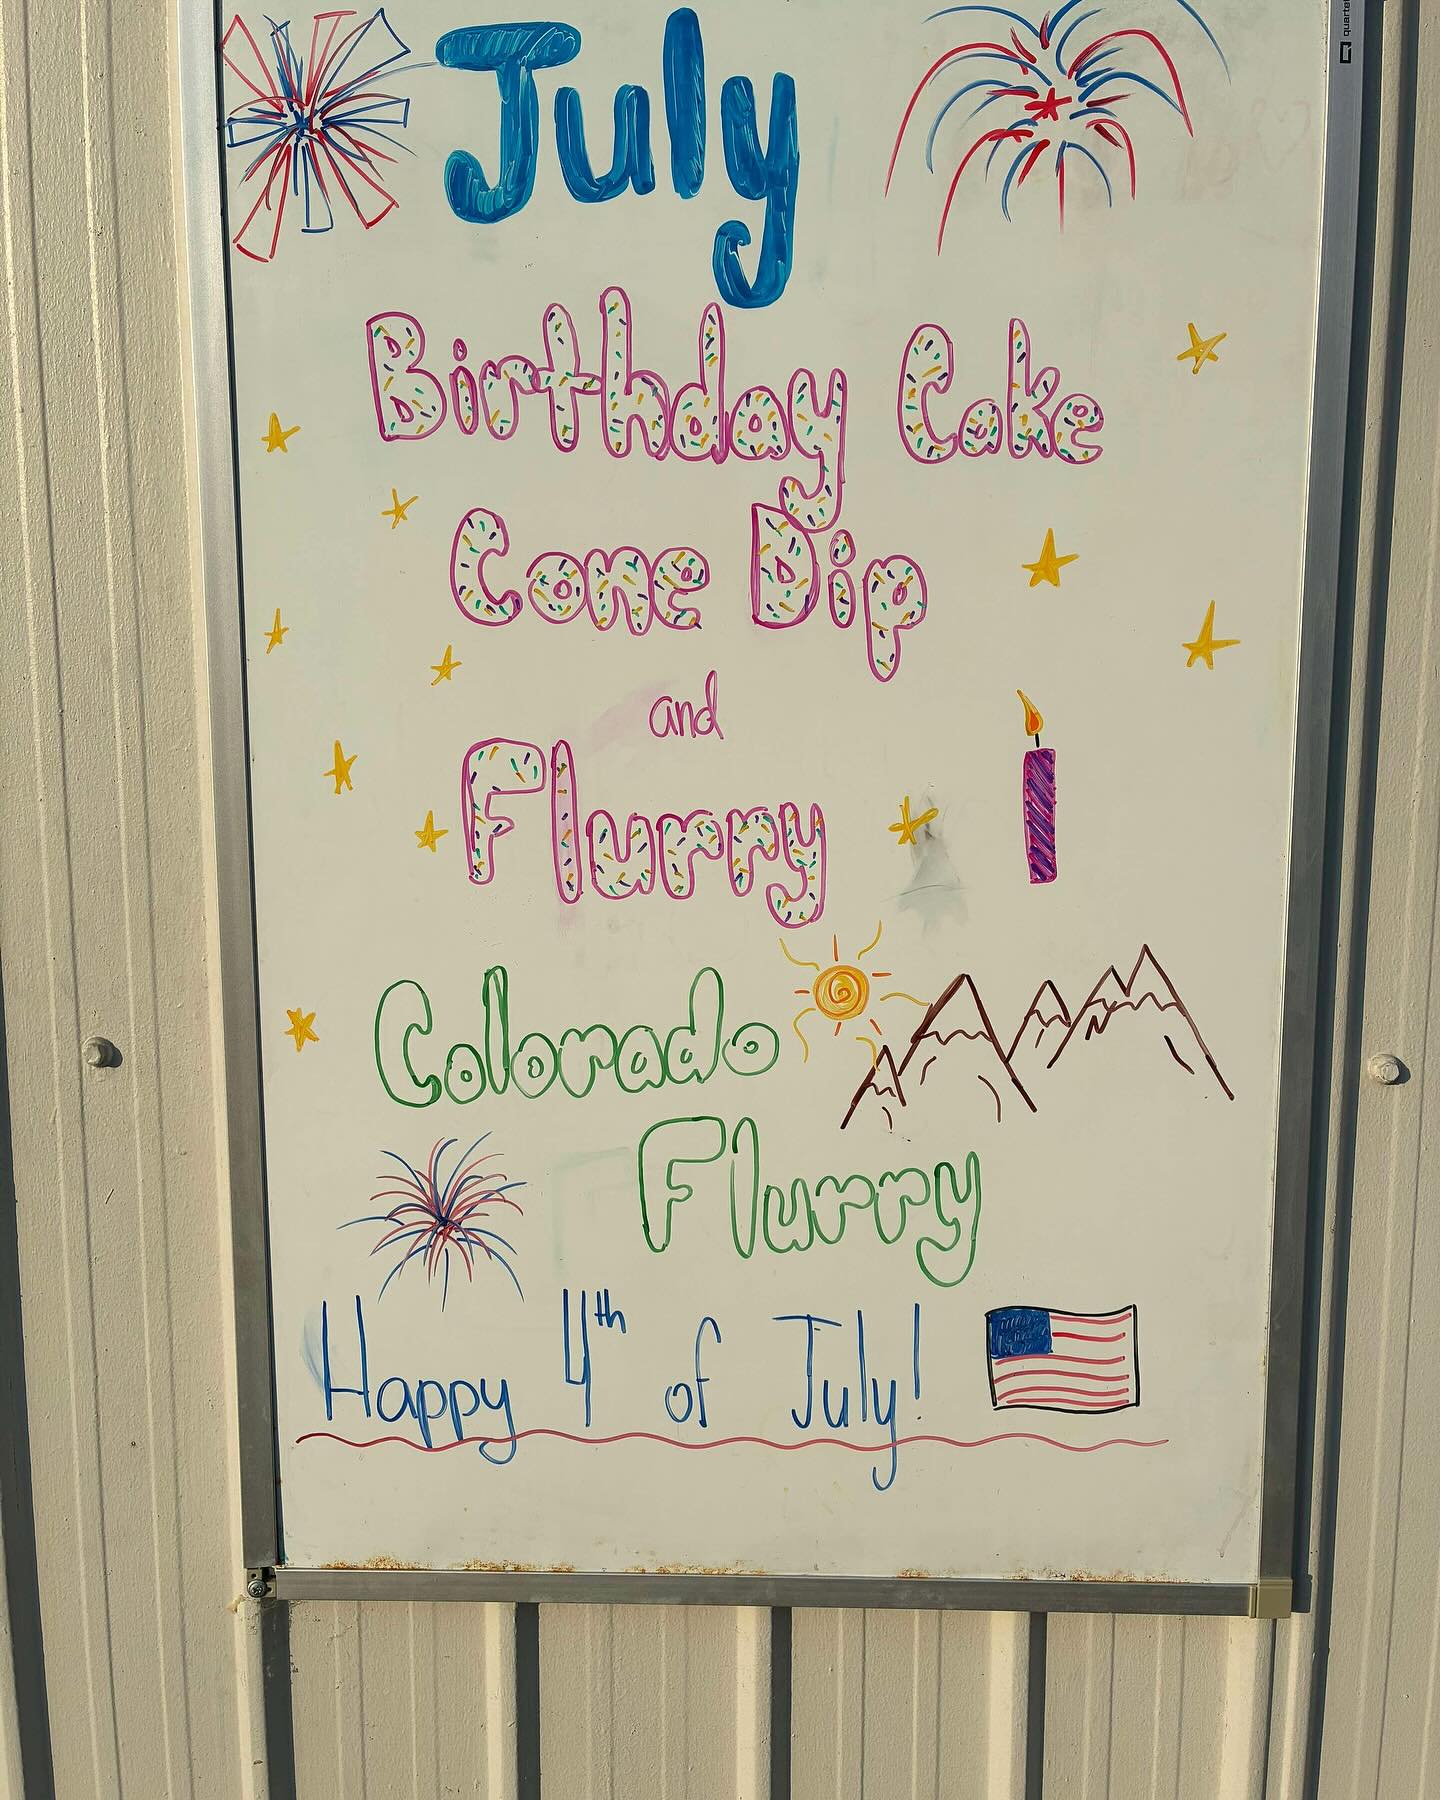 July
Birthday Cake
Cone Dip
and
Flurry
Colorado
Flurry
Happy 4th of July!
quartet